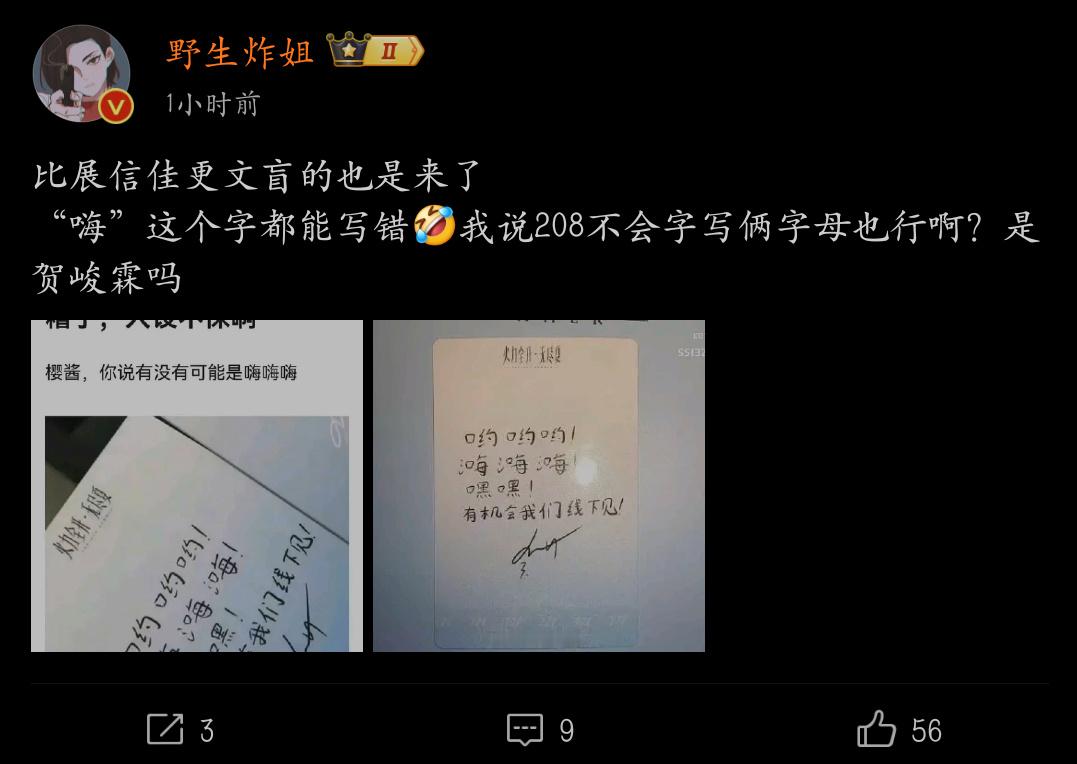 野生炸姐
II
V
1小时前
比展信佳更文盲的也是来了
“嗨”这个字都能写错🤣我说208不会字写俩字母也行啊？是
贺峻霖吗
樱酱，你说有没有可能是嗨嗨嗨
火力全开·无尽夏
哟约！
海海！
黑！
我们线下见！
火力全开·无尽夏
哟哟哟！
嗨嗨嗨！
嘿嘿！
有机会我们线下见！
3
9
56